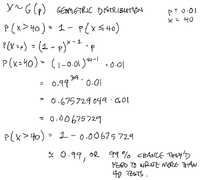 X ~ G(p) GEOMETRIC DISTRIBUTION p = 0.01
x = 40
P(X > 40) = 1 - P(X ≤ 40)
P(X = x) = (1 - p)^{x-1} · p
P(X = 40) = (1 - 0.01)^{40-1} · 0.01
= 0.99^{39} · 0.01
= 0.675729049 · 0.01
= 0.00675729
P(X > 40) = 1 - 0.00675729
≈ 0.99, OR 99% CHANCE THEY'D
NEED TO WRITE MORE THAN
40 TESTS.